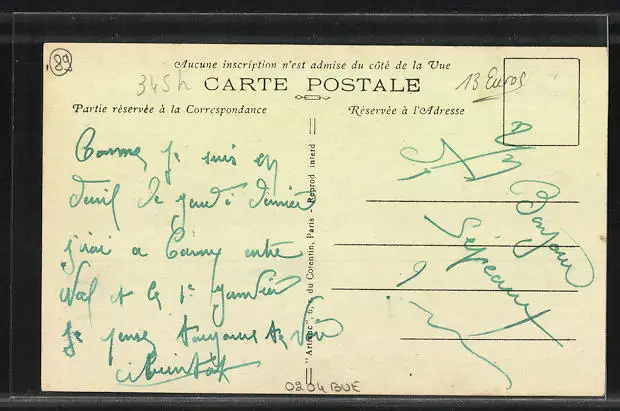 89
Aucune inscription n'est admise du côté de la Vue
345h
CARTE POSTALE
13 Euros
Partie réservée à la Correspondance
Réservée à l'Adresse
Comme je suis en
deuil de jeudi dernier
j'irai a entre
Noël et le 1er Janvier
Je pense toujours te voir
"Artistic", 6, r. du Corentin, Paris - Reprod interd
Un Bonjour
0204BUE